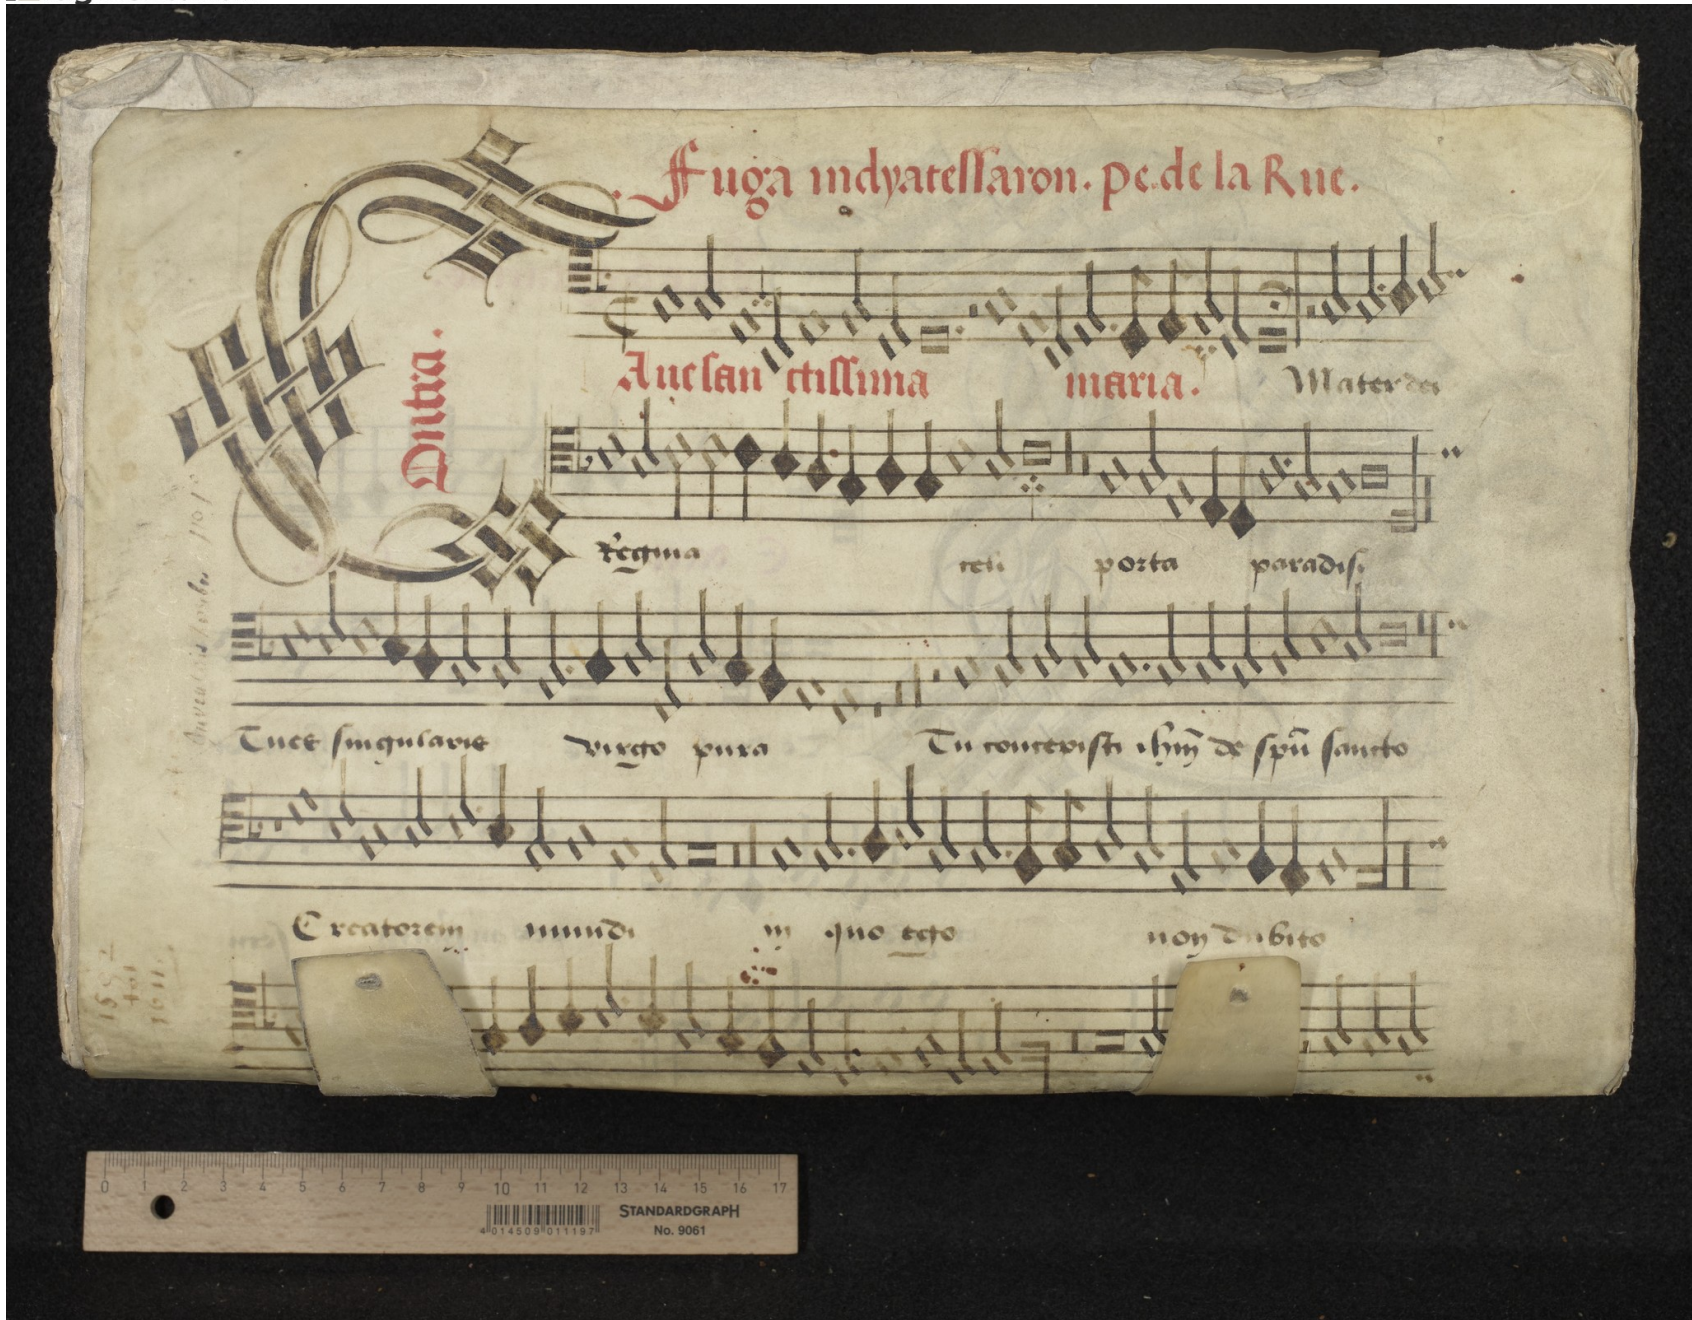 Fuga indyatessaron. pe. de la Rue.
Contra.
Aue san ctissima maria. Mater dei
Regina celi porta paradisi
Tu es singularis virgo pura Tu concepisti ihm̄ de spū sancto
Creatorem mundi in quo ego non dubito
1611
0 1 2 3 4 5 6 7 8 9 10 11 12 13 14 15 16 17
STANDARDGRAPH
No. 9061
4 014509 011197